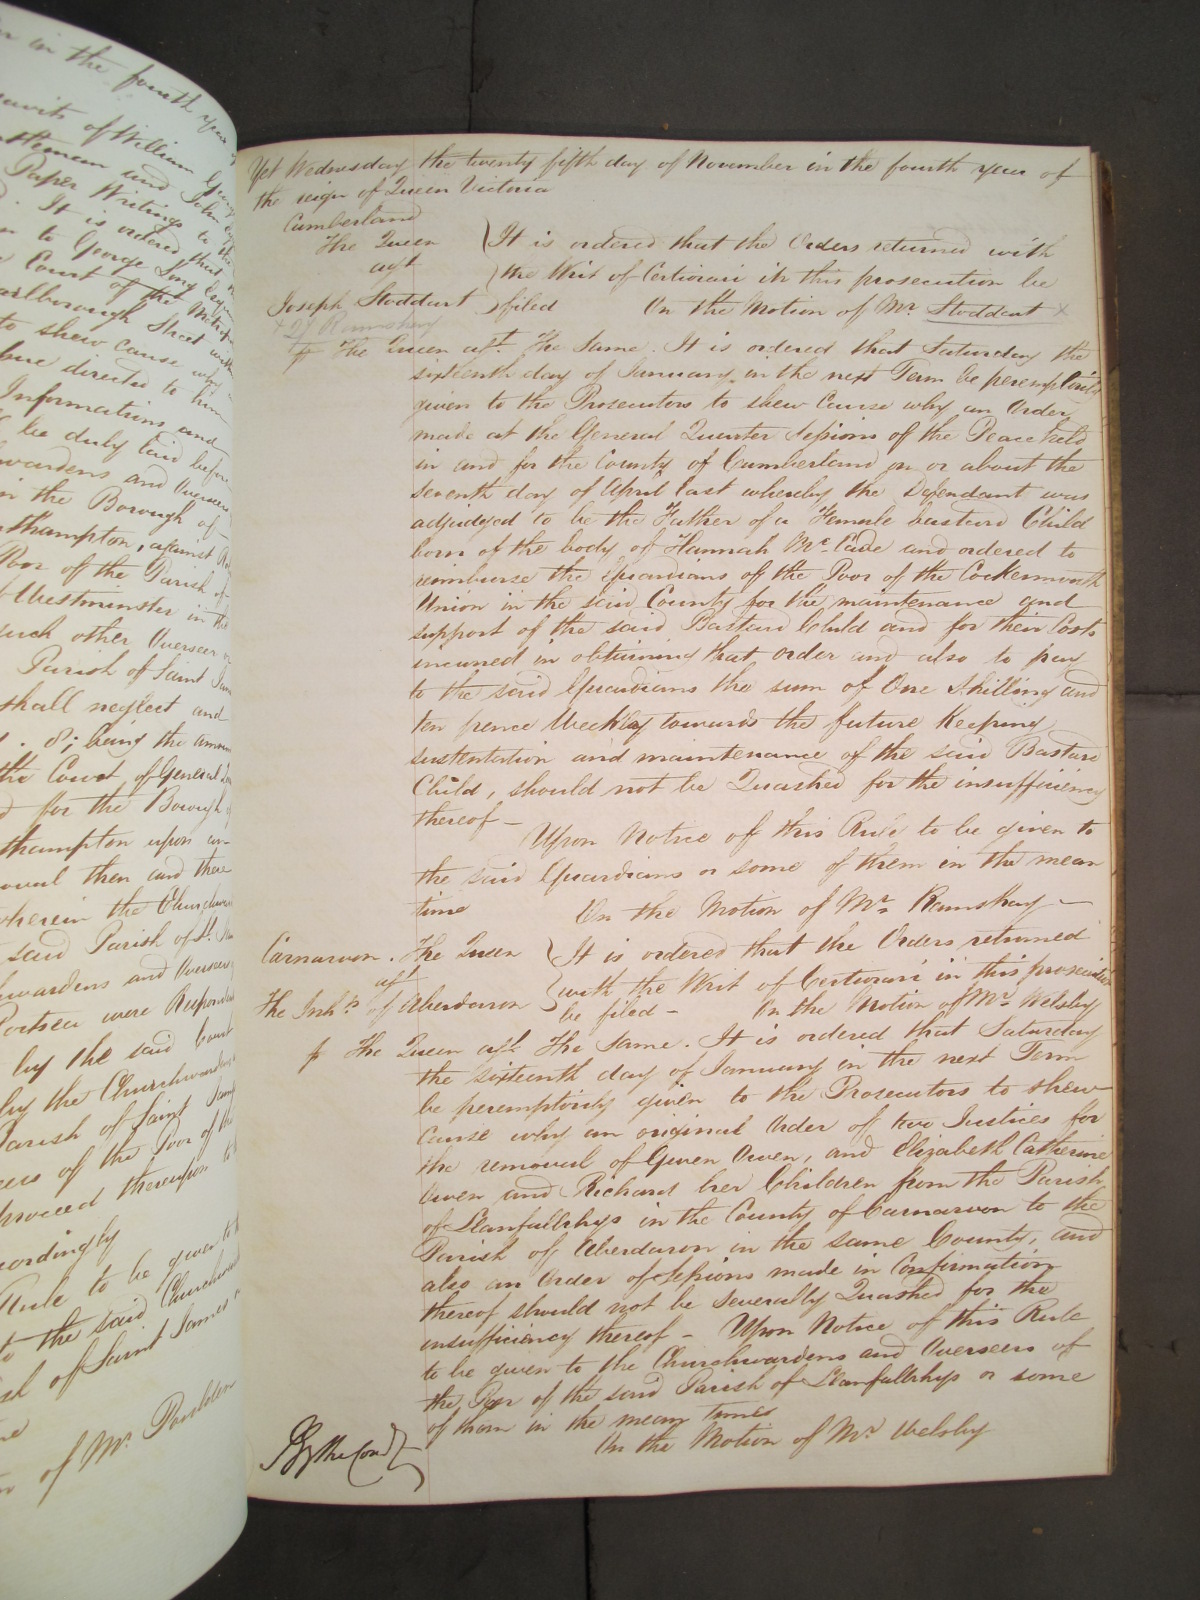 in the fourth year
of William
and John
Paper Writings to the
It is ordered that
to George Long Esquire
Court of the
Marlborough Street
to shew cause why
directed to him
Information and
be duly laid before
and Overseers
in the Borough of
against
Poor of the Parish of
Westminster in the
such other Overseer
Parish of Saint
shall neglect and
being the
the Court of General
for the Borough
upon
then and there
wherein the
said Parish of St.
and Overseers
Portsea were
by the said Court
by the Churchwardens
Parish of Saint James
of the Poor of the
proceed thereupon

Rule to be given to
to the said Churchwardens
of Saint James
of Mr. Poulden
Yet Wednesday the twenty fifth day of November in the fourth year of
the reign of Queen Victoria
Cumberland
The Queen
agt
Joseph Stoddart
It is ordered that the Orders returned with
the Writ of Certiorari in this prosecution be
filed On the Motion of Mr. Stoddart x
+ Qy Ramshay
p The Queen agt. The Same. It is ordered that Saturday the
sixteenth day of January in the next Term be peremptorily
given to the Prosecutors to shew Cause why an Order
made at the General Quarter Sessions of the Peace held
in and for the County of Cumberland on or about the
seventh day of April last whereby the Defendant was
adjudged to be the Father of a Female bastard Child
born of the body of Hannah Mc. Cade and ordered to
reimburse the Guardians of the Poor of the Cockermouth
Union in the said County for the maintenance and
support of the said Bastard Child and for their Costs
incurred in obtaining that order and also to pay
to the said Guardians the sum of One Shilling and
ten pence Weekly towards the future Keeping
sustentation and maintenance of the said Bastard
Child, should not be Quashed for the insufficiency
thereof — Upon Notice of this Rule to be given to
the said Guardians or some of them in the mean
time On the Motion of Mr. Ramshay —
Carnarvon. The Queen
agt
The Inhts. of Aberdaron
It is ordered that the Orders returned
with the Writ of Certiorari in this prosecution
be filed — On the Motion of Mr. Welsby
p The Queen agt. The Same. It is ordered that Saturday
the sixteenth day of January in the next Term
be peremptorily given to the Prosecutors to shew
Cause why an original Order of two Justices for
the removal of Gwen Owen, and Elizabeth Catherine
Owen and Richard her Children from the Parish
of Llanfallrhys in the County of Carnarvon to the
Parish of Aberdaron in the same County, and
also an Order of Sessions made in Confirmation
thereof should not be severally Quashed for the
insufficiency thereof — Upon Notice of this Rule
to be given to the Churchwardens and Overseers of
the Poor of the said Parish of Llanfallrhys or some
of them in the mean time
On the Motion of Mr. Welsby
By the Court